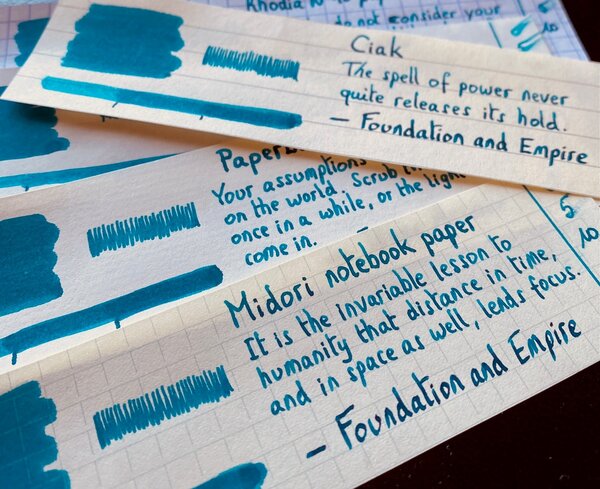 do not consider your
10
Ciak
The spell of power never
quite releases its hold.
— Foundation and Empire
Your assumptions
on the world. Scrub
once in a while, or the light
come in.
5
10
Midori notebook paper
It is the invariable lesson to
humanity that distance in time,
and in space as well, lends focus.
— Foundation and Empire